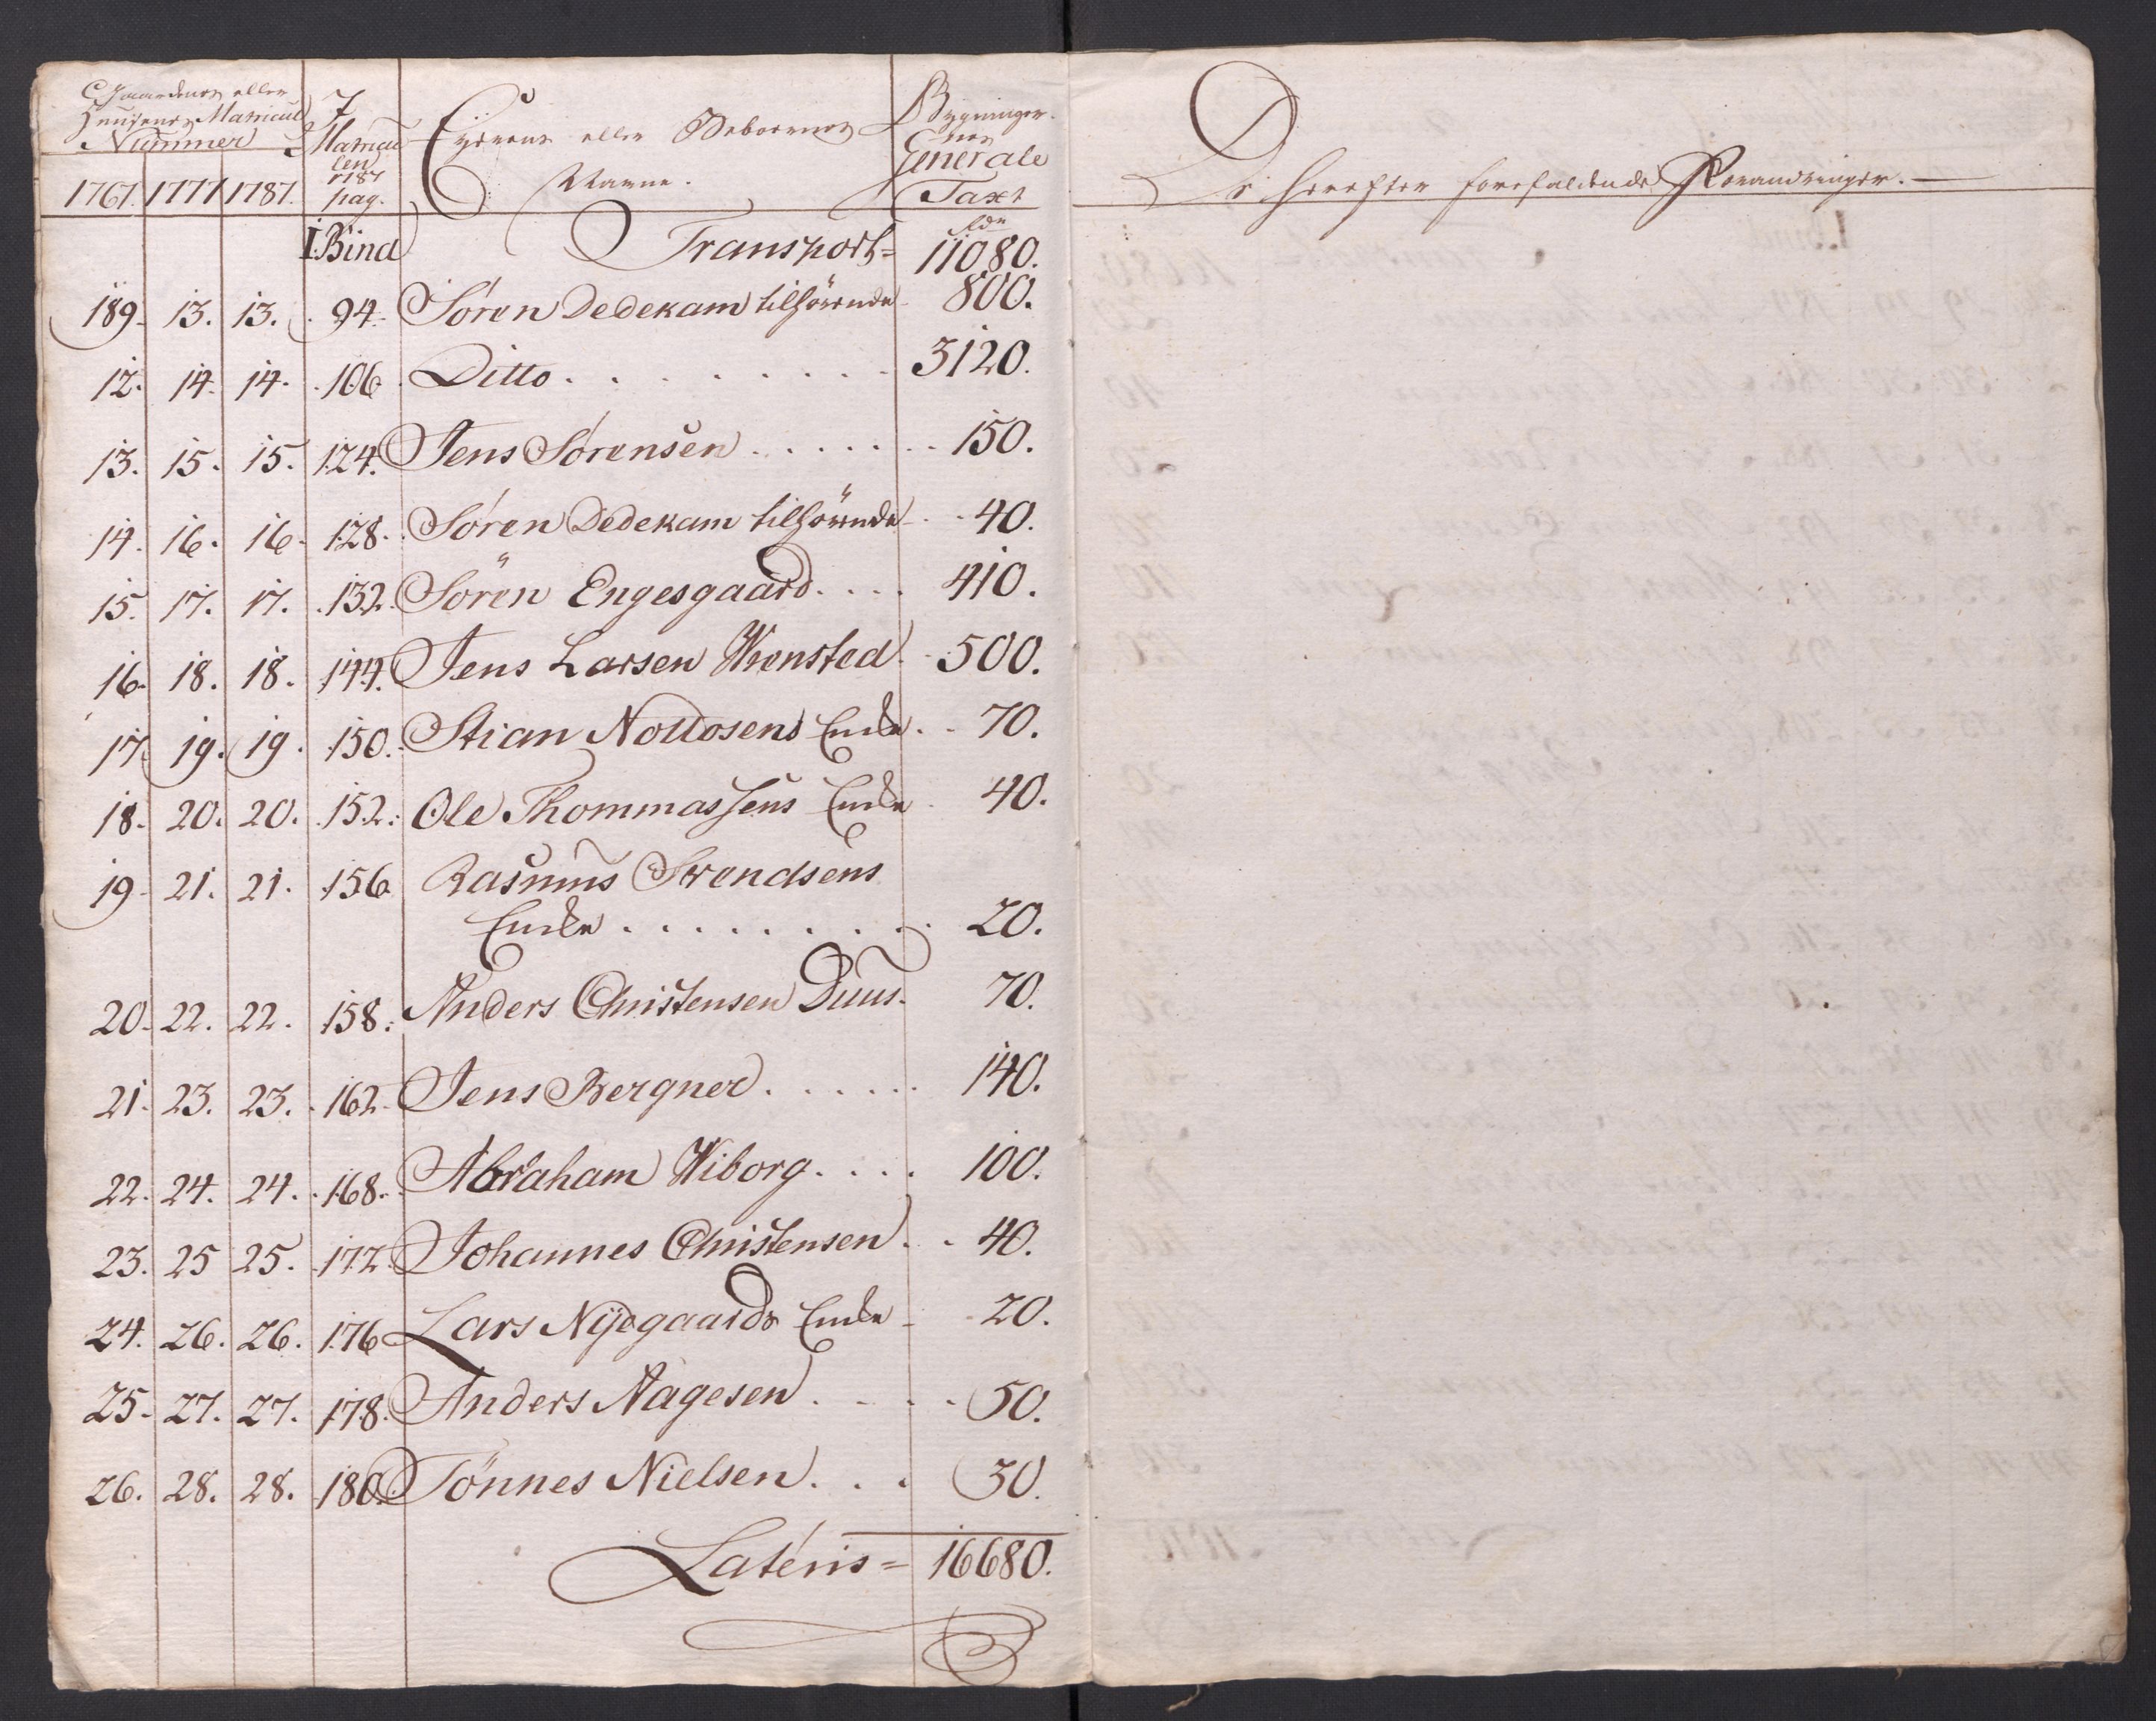 Gaardenes eller
Huusenes Matricul
Nummer
I
Matricu
len
1787
pag.
Eÿerens eller Beboernes
Navne.
Bygninger-
nes
Generale
Taxt
1767. 1777 1787.
rdr
I. Bind Transport= 11080.
189. 13. 13. 94. Sören Dedekam tilhörende 800.
12. 14. 14. 106. Ditto . . . . . . . . . 3120.
13. 15. 15. 124. Jens Sörensen . . . . . . 150.
14. 16. 16. 128. Sören Dedekam tilhörende . . 40.
15. 17. 17. 132. Sören Engesgaard. . . . 410.
16. 18. 18. 144. Jens Larsen Wronsted . . 500.
17. 19. 19. 150. Stian Nottosens Enke . . 70.
18. 20. 20. 152. Ole Thommassens Enke . 40.
19. 21. 21. 156 Rasmus Svendsens
Enke . . . . . . . . . 20.
20. 22. 22. 158. Anders Christensen Duus. 70.
21. 23. 23. 162. Jens Bergner . . . . . . 140.
22. 24. 24. 168. Abraham Wiborg. . . . 100.
23. 25 25. 172. Johannes Christensen . . 40.
24. 26. 26. 176 Lars Nÿegaards Enke . 20.
25. 27. 27. 178. Anders Aagesen . . . . 50.
26. 28. 28. 180. Tönnes Nielsen. . . 30.
Lateris= 16680.
De herefter forefaldende Forandringer.